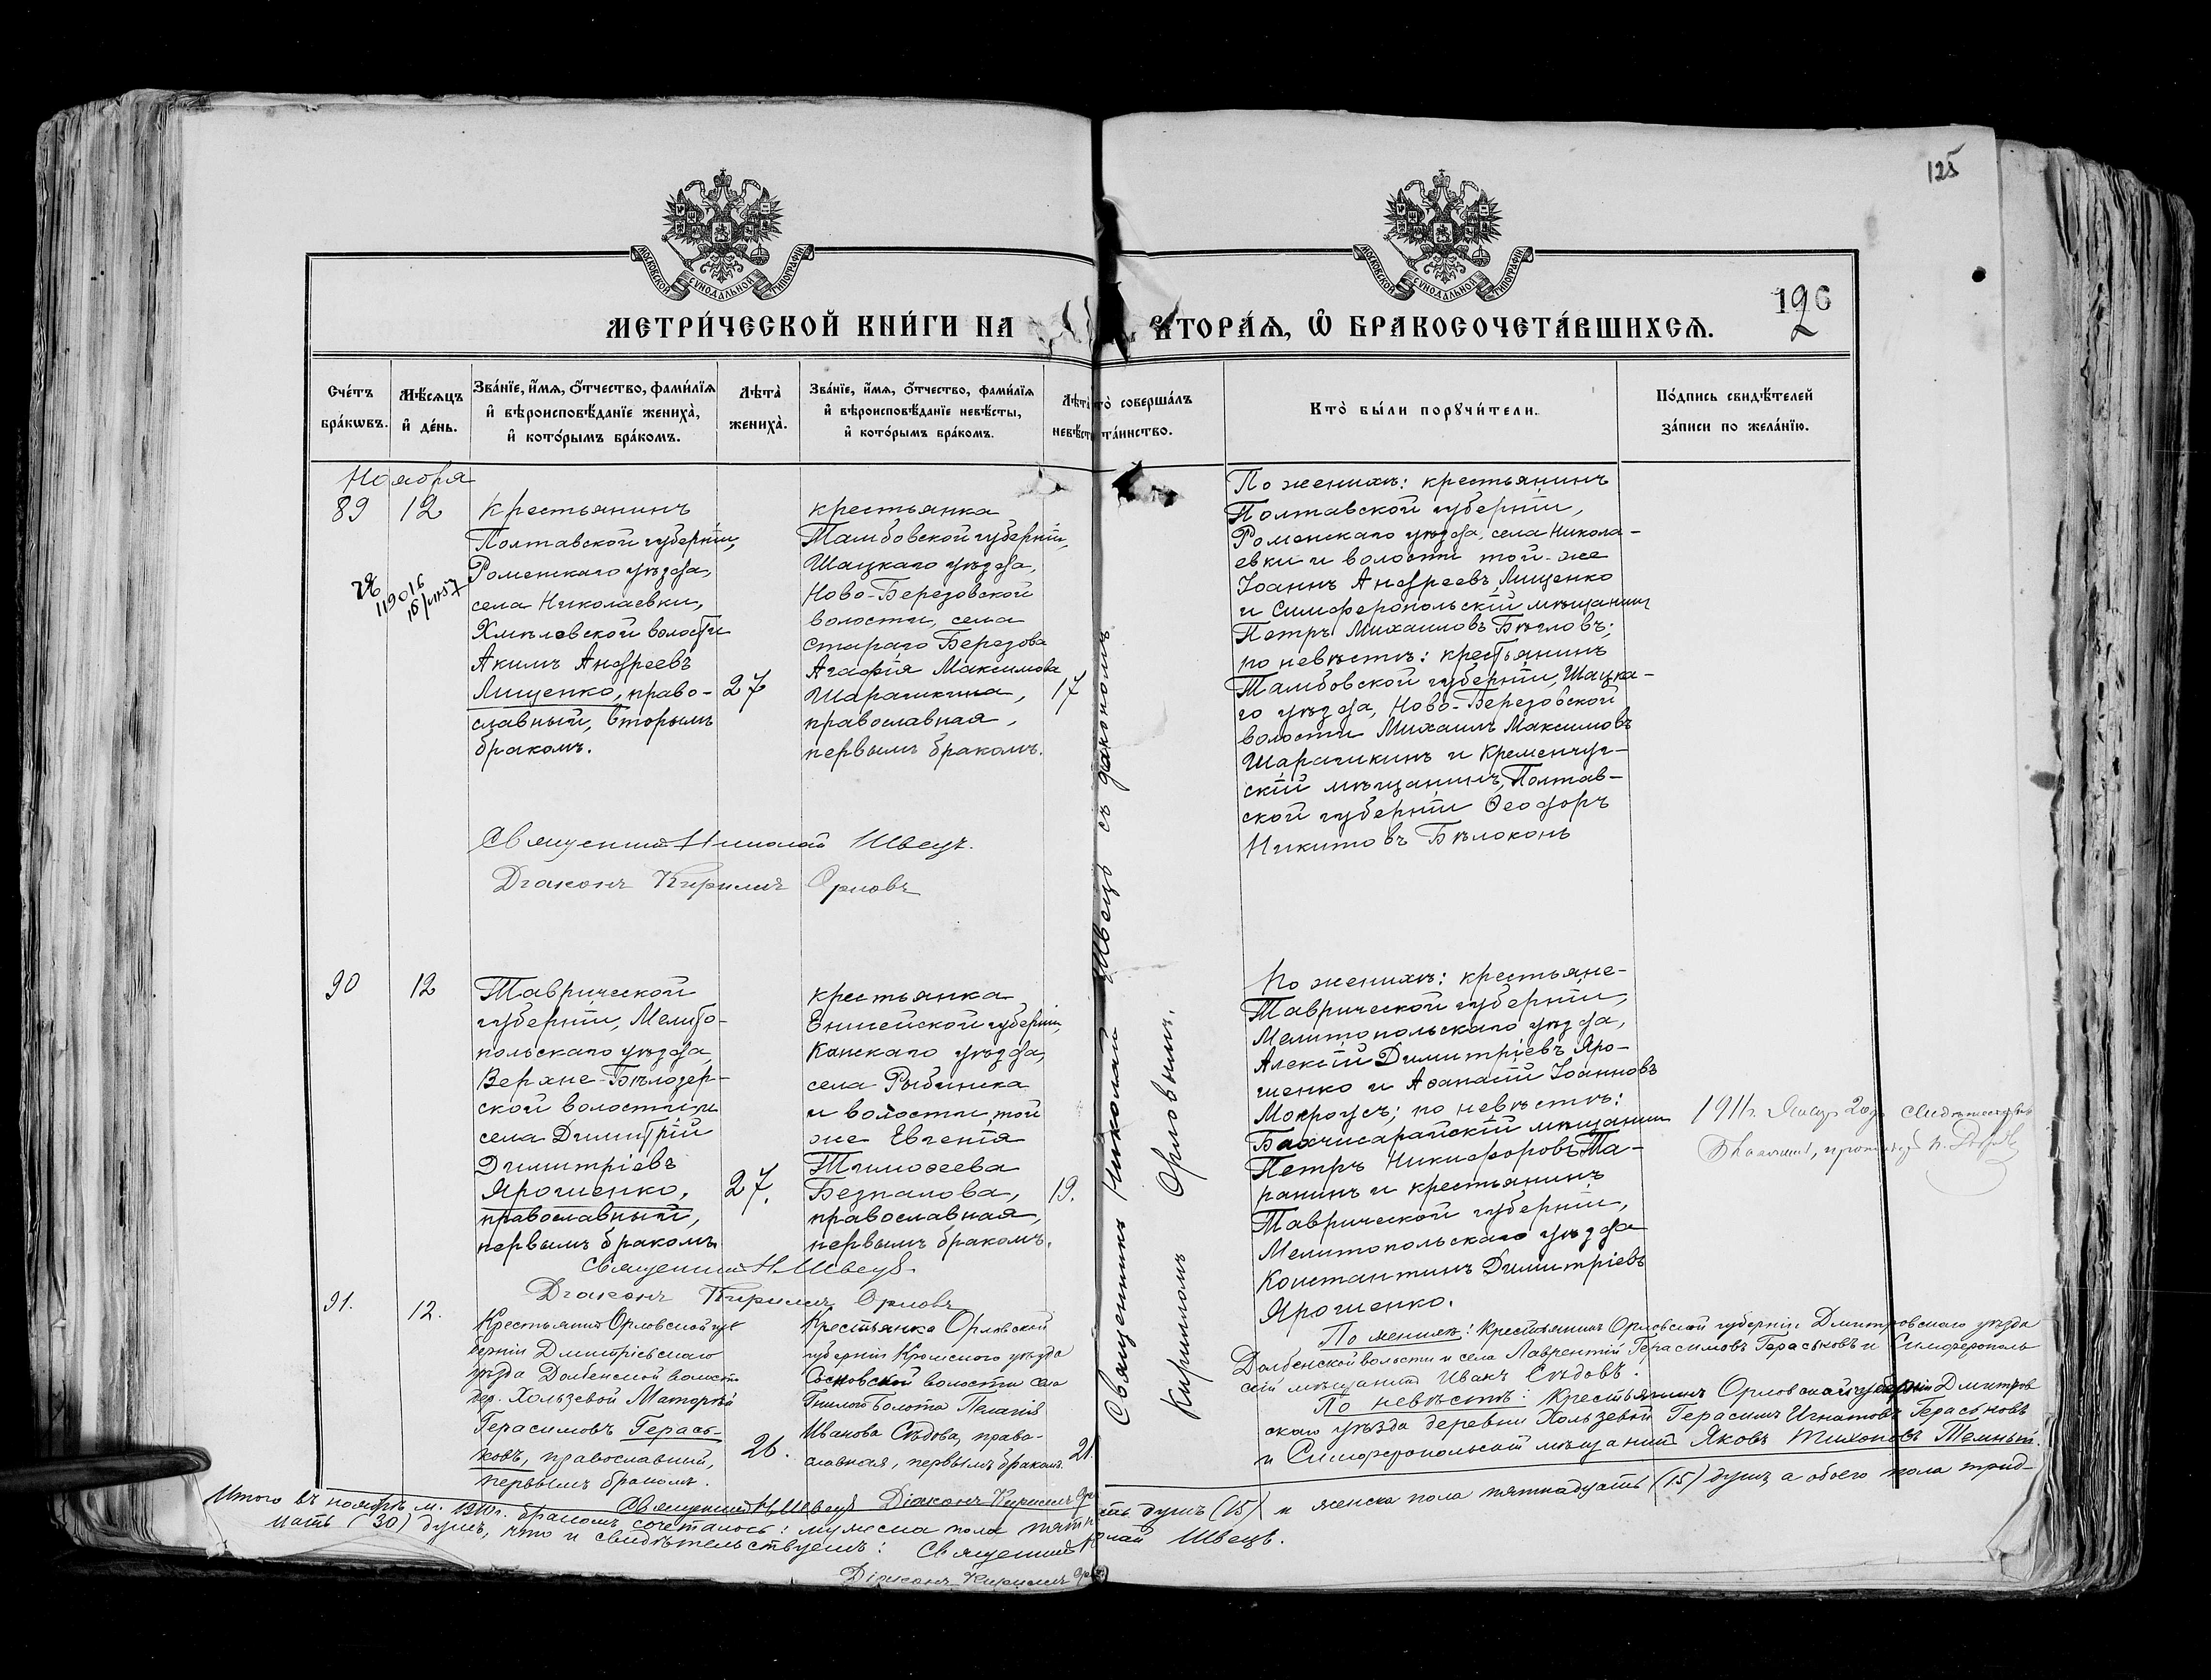 125
126
МОСКОВСКОЙ СѴНОДАЛЬНОЙ ТИПОГРАФІИ
МОСКОВСКОЙ СѴНОДАЛЬНОЙ ТИПОГРАФІИ
МЕТРИ́ЧЕСКОЙ КНИ́ГИ НА ВТОРА́Ѧ, Ѽ БРАКОСОЧЕТА́ВШИХСѦ.
Сче́тъ бра́кѡвъ.
Мѣ́сѧцъ и҆ де́нь.
Зва́нїе, и҆́мѧ, ѻ҆́тчество, фами́лїѧ
и҆ вѣроисповѣ́данїе жениха̀,
и҆ кото́рымъ бра́комъ.
Лѣта̀ жениха̀.
Зва́нїе, и҆́мѧ, ѻ҆́тчество, фами́лїѧ
и҆ вѣроисповѣ́данїе невѣ́сты,
и҆ кото́рымъ бра́комъ.
Лѣта̀ невѣ́сты
то̀ соверша́лъ
та́инство.
Кто̀ бы́ли порꙋчи́тели.
По́дпись свидѣ́телей
за́писи по жела́нїю.
Ноября
89
12
119016
Крестьянинъ
Полтавской губерніи,
Роменскаго уѣзда,
села Николаевки,
Хмѣловской волости
Акимъ Андреевъ
Лищенко, право-
славный, вторымъ
бракомъ.
27
крестьянка
Тамбовской губерніи,
Шацкаго уѣзда,
Ново-Березовской
волости, села
Стараго Березова
Агафія Максимова
Шарашкина,
православная,
первымъ бракомъ.
17
По женихѣ: крестьянинъ
Полтавской губерніи,
Роменскаго уѣзда, села Никола-
евки и волости той-же
Іоаннъ Андреевъ Лищенко
и Симферопольскій мѣщанинъ
Петръ Михаиловъ Бѣгловъ;
по невѣстѣ: крестьянинъ
Тамбовской губерніи, Шацка-
го уѣзда, Ново-Березовской
волости Михаилъ Максимовъ
Шарашкинъ и Кременчуг-
скій мѣщанинъ, Полтав-
ской губерніи Ѳеодоръ
Никитовъ Бѣлоконь
Священникъ Николай Швецъ.
Діаконъ Кириллъ Орловъ
Священникъ Николай Швецъ съ діакономъ
Кирилломъ Орловымъ.
90
12
Таврической
губерніи, Мелито-
польскаго уѣзда,
Верхне-Бѣлозер-
ской волости и
села Димитрій
Димитріевъ
Ярошенко,
православный,
первымъ бракомъ
27.
крестьянка
Енисейской губерніи,
Канскаго уѣзда,
села Рыбинска
и волости той
же Евгенія
Тимоѳеева
Безпалова,
православная,
первымъ бракомъ.
19.
По женихѣ: крестьяне-
Таврической губерніи,
Мелитопольскаго уѣзда,
Алексій Димитріевъ Яро-
шенко и Аѳанасій Іоанновъ
Мокроусъ; по невѣстѣ:
Бахчисарайскій мѣщанинъ
Петръ Никифоровъ Та-
ранинъ и крестьянинъ
Таврической губерніи,
Мелитопольскаго уѣзда
Константинъ Димитріевъ
Ярошенко.
1911г. Январ 20
Благочинный, протоіерей
Священникъ Н. Швецъ.
Діаконъ Кириллъ Орловъ
91.
12.
Крестьянинъ Орловской гу-
берніи Дмитріевскаго
уѣзда Долбенской волости
дер. Хользевой
Герасимовъ Герась-
ковъ, православный,
первымъ бракомъ.
26.
Крестьянка Орловской
губерніи Кромского уѣзда
Сосковской волости села
Гнилого Болота Пелагія
Иванова Сѣдова, право-
славная, первымъ бракомъ.
21.
По женихѣ: Крестьянинъ Орловской губерніи Дмитровскаго уѣзда
Долбенской волости и села Лаврентій Герасимовъ Гераськовъ и Симферополь
скій мѣщанинъ Иванъ Сѣдовъ.
По невѣстѣ: Крестьянинъ Орловской губерніи Дмитров
скаго уѣзда деревни Хользевой Герасимъ Игнатовъ Гераськовъ
и Симферопольскій мѣщанинъ Яковъ Тихоновъ Темный.
Священникъ Н. Швецъ Діаконъ Кириллъ Орл
Итого въ ноябрѣ м. 1910г. бракомъ сочеталось: мужеска пола пятн ать душъ (15) и женска пола пятнадцать (15) душъ, а обоего пола трид-
цать (30) душъ, что и свидѣтельствуемъ: Священникъ Николай Швецъ.
Діаконъ Кириллъ Орл